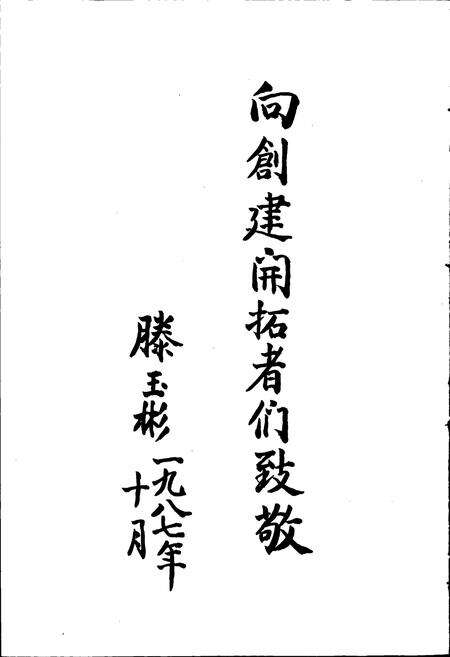 向創建開拓者们致敬
滕玉彬一九八七年
十月